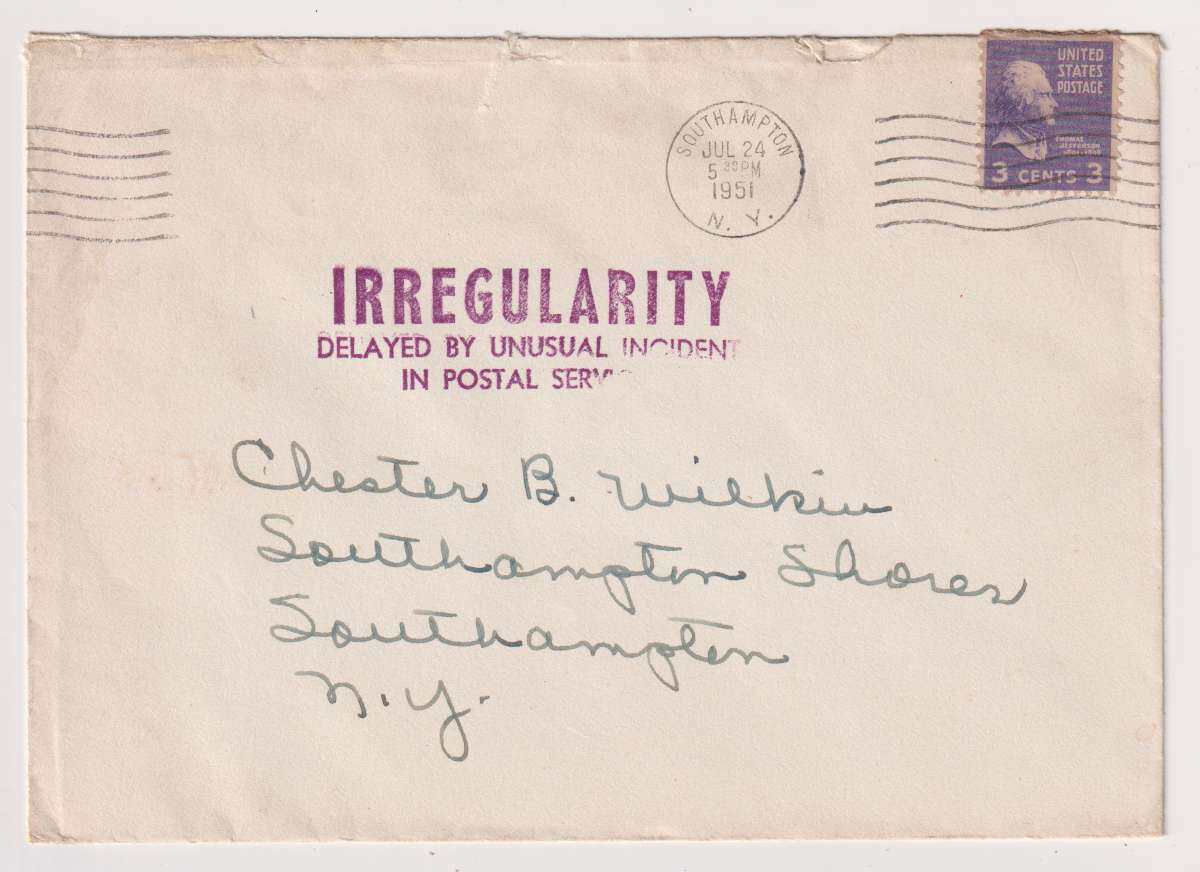 UNITED
STATES
POSTAGE
THOMAS
JEFFERSON
3 CENTS 3
SOUTHAMPTON
JUL 24
5 30 PM
1951
N. Y.
IRREGULARITY
DELAYED BY UNUSUAL INCIDENT
IN POSTAL
Chester B. Wilkin
Southampton Shores
Southampton
N.Y.